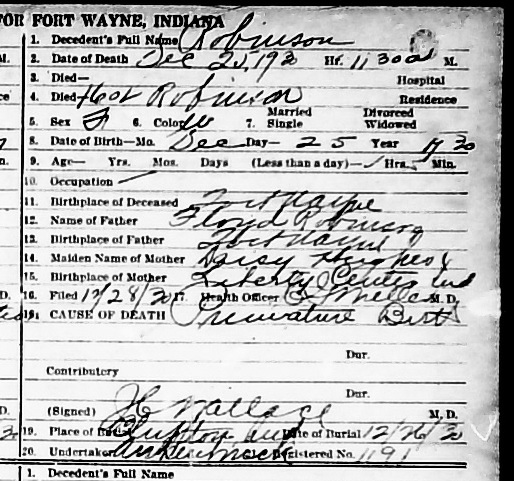 TOR FORT WAYNE, INDIANA
1. Decedent's Full Name Robinson
2. Date of Death Dec 25, 1930 Hr. 11 30 M.
3. Died— Hospital
4. Died Robinson Residence
Married Divorced
5. Sex F 6. Color W 7. Single Widowed
8. Date of Birth—Mo. Dec Day— 25 Year 1930
9. Age— Yrs. Mos. Days (Less than a day)— Hrs. Min.
10. Occupation —
11. Birthplace of Deceased Fort Wayne
12. Name of Father Floyd Robinson
13. Birthplace of Father Fort Wayne
14. Maiden Name of Mother Daisy Hughes
15. Birthplace of Mother Liberty Center Ind
16. Filed 12/28/30 17. Health Officer M. D.
18. CAUSE OF DEATH Premature Birth
Dur.
Contributory
Dur.
(Signed) Wallace M. D.
19. Place of Burial Bluffton Ind Date of Burial 12/26/30
20. Undertaker Registered No. 1191
1. Decedent's Full Name